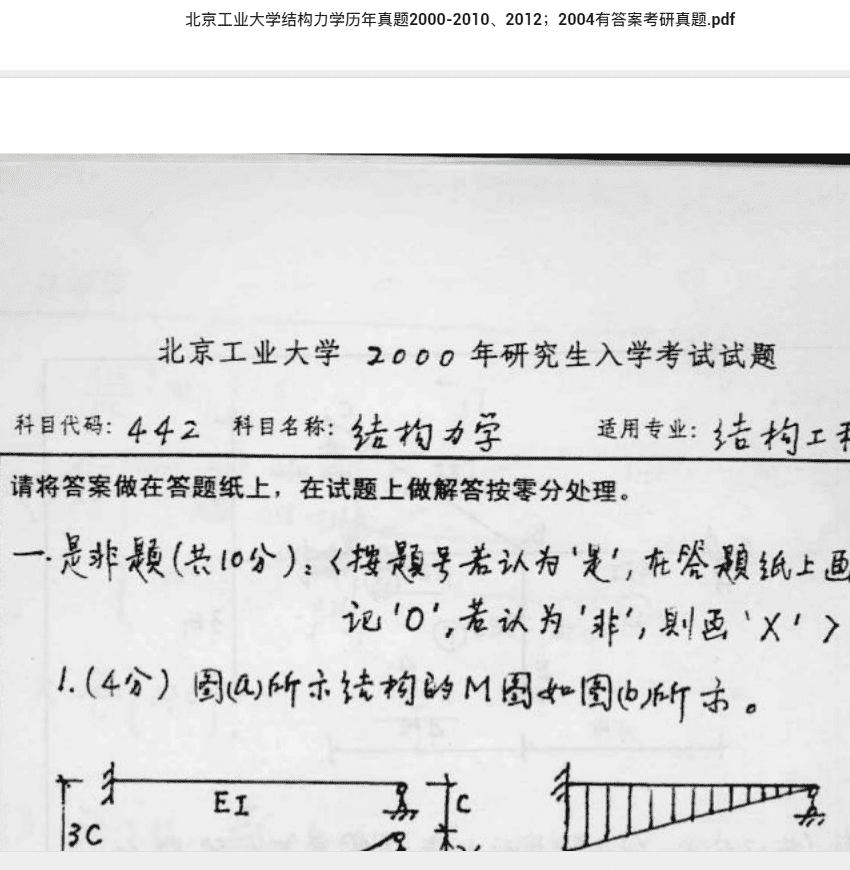 北京工业大学结构力学历年真题2000-2010、2012；2004有答案考研真题.pdf
北京工业大学 2000 年研究生入学考试试题
科目代码: 442 科目名称: 结构力学 适用专业: 结构工程
请将答案做在答题纸上，在试题上做解答按零分处理。
一. 是非题(共10分): <按题号若认为'是', 在答题纸上画
记'O', 若认为'非', 则画'X'>
1.(4分) 图(a)所示结构的M图如图(b)所示。
EI
C
3C